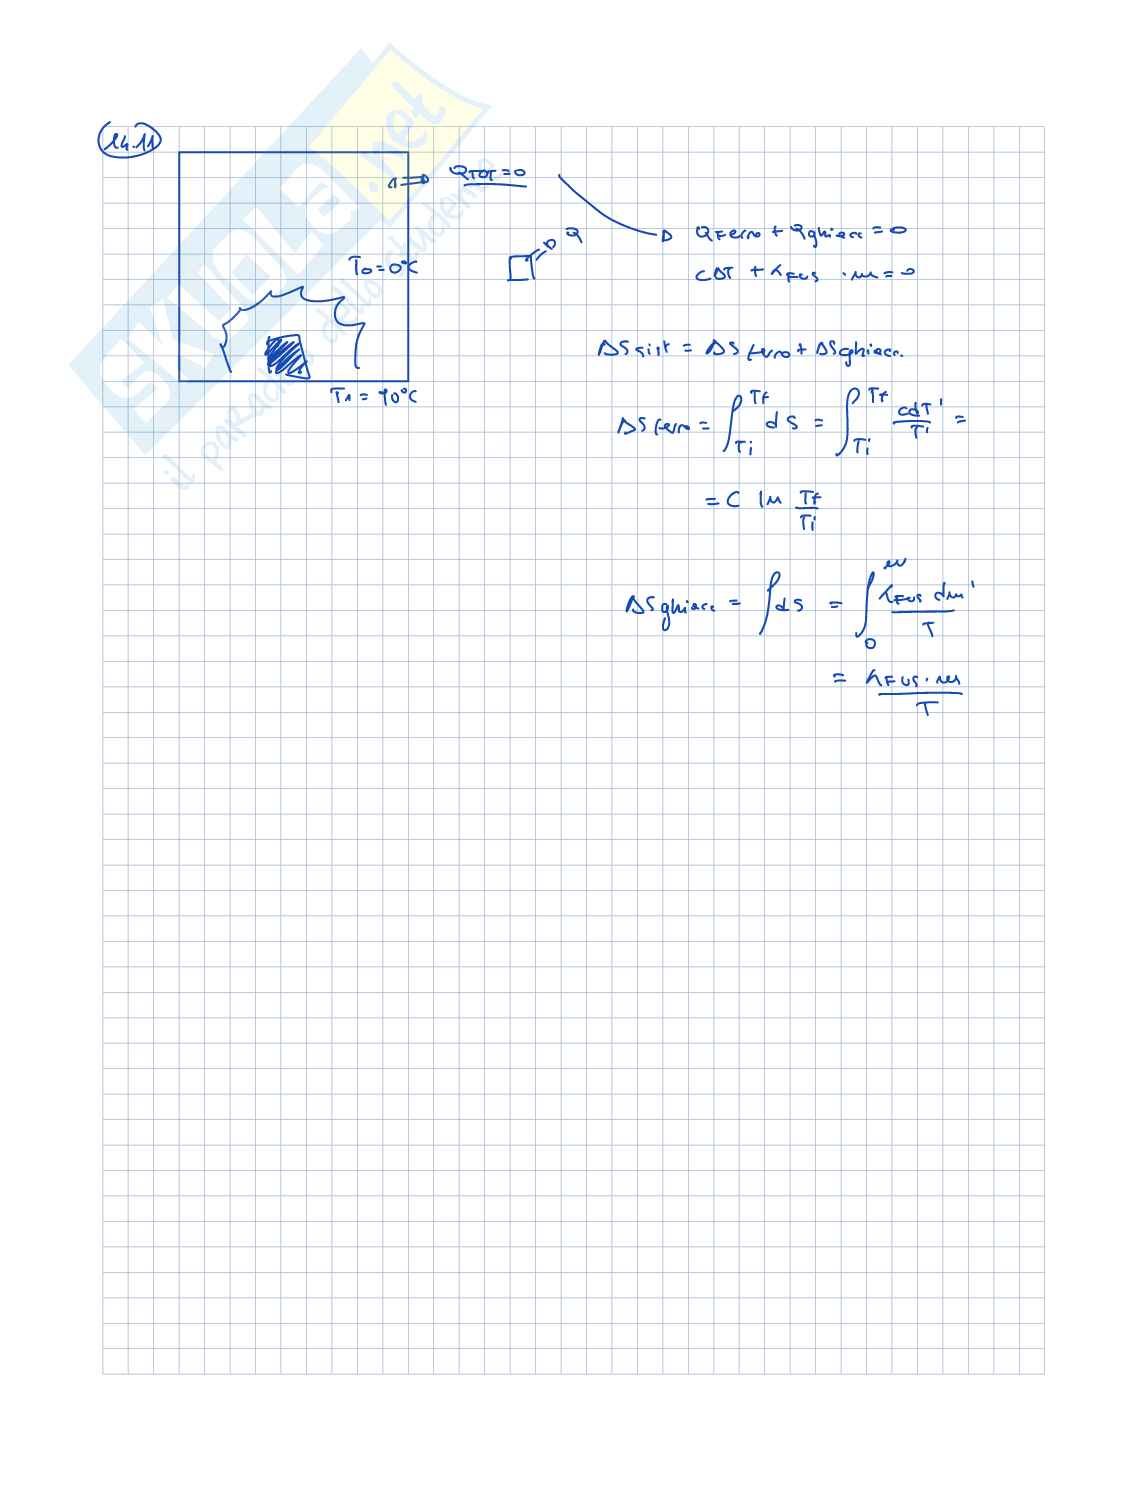 14.11
Q_TOT = 0
Q_Ferro + Q_ghiacc = 0
T_0 = 0°C
Q
CΔT + λ_FUS · m = 0
ΔS_sist = ΔS_ferro + ΔS_ghiacc.
T_1 = 90°C
ΔS_ferro = ∫_{Ti}^{Tf} dS = ∫_{Ti}^{Tf} cdT'/T' =
= C ln Tf/Ti
ΔS_ghiacc = ∫dS = ∫_0^m λ_FUS dm'/T
= λ_FUS · m/T
SKUOLA.net
il paradiso dello studente